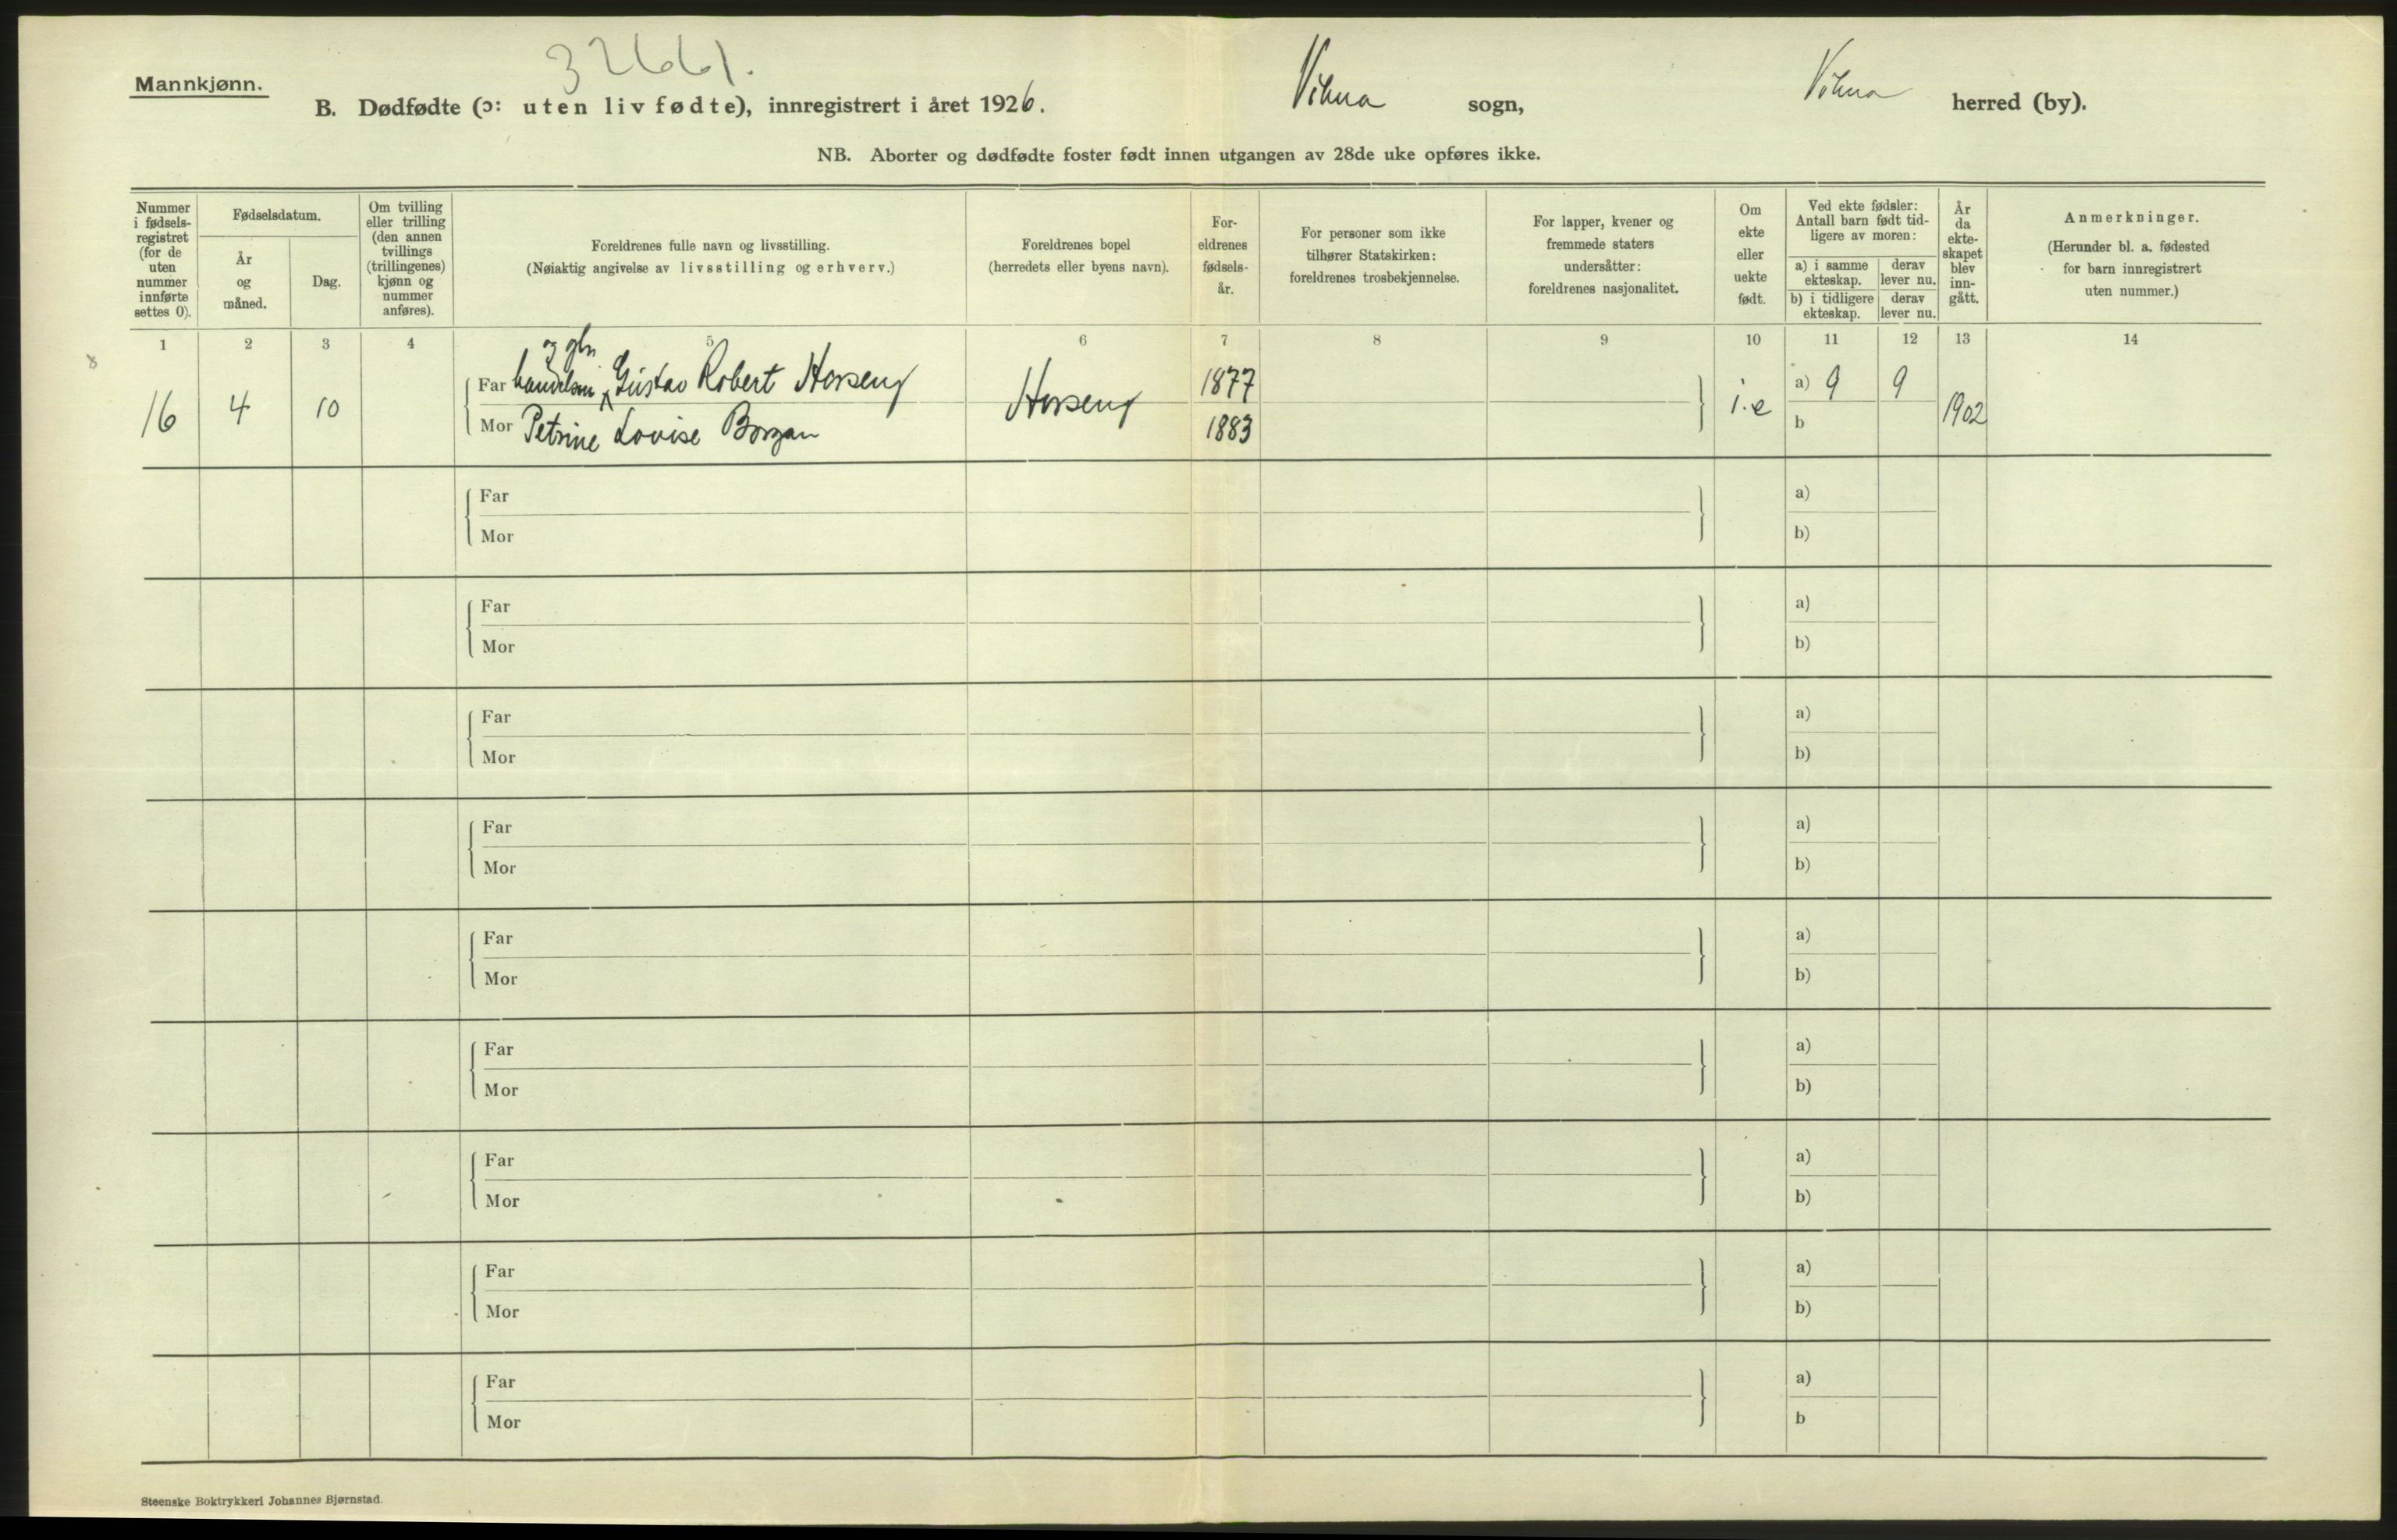 Mannkjønn.
32661.
B. Dødfødte (ɔ: uten liv fødte), innregistrert i året 1926.
Vikna sogn,
Vikna herred (by).
NB. Aborter og dødfødte foster født innen utgangen av 28de uke opføres ikke.
Nummer i fødsels-registret (for de uten nummer innførte settes 0).
Fødselsdatum.
År og måned.
Dag.
Om tvilling eller trilling (den annen tvillings (trillingenes) kjønn og nummer anføres).
Foreldrenes fulle navn og livsstilling.
(Nøiaktig angivelse av livsstilling og erhverv.)
Foreldrenes bopel
(herredets eller byens navn).
For-eldrenes fødsels-år.
For personer som ikke
tilhører Statskirken:
foreldrenes trosbekjennelse.
For lapper, kvener og
fremmede staters
undersåtter:
foreldrenes nasjonalitet.
Om ekte eller uekte født.
Ved ekte fødsler:
Antall barn født tid-
ligere av moren:
a) i samme ekteskap.
derav lever nu.
b) i tidligere ekteskap.
derav lever nu.
År da ekte-skapet blev inn-gått.
Anmerkninger.
(Herunder bl. a. fødested
for barn innregistrert
uten nummer.)
1 2 3 4 5 6 7 8 9 10 11 12 13 14
og gbr
16 4 10 Far handelsm Gustav Robert Horseng Horseng 1877 i.e a) 9 9 1902
Mor Petrine Lovise Borgan 1883 b
Far a)
Mor b)
Far a)
Mor b)
Far a)
Mor b)
Far a)
Mor b)
Far a)
Mor b)
Far a)
Mor b)
Far a)
Mor b)
Far a)
Mor b)
Far a)
Mor b
Steenske Boktrykkeri Johannes Bjørnstad.